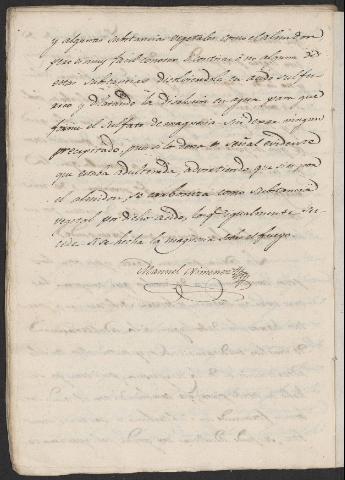 y algunas substancias vegetales como el almidon
pero es muy facil conocer si contiene alguna de
estas substancias disolviendola en acido sulfu-
rico y diluiendo la disolucion en agua para que
forme el sulfato de magnesia sin dexar ningun
precipitado, pues si lo dexa es señal evidente
que estaba adulterada, advirtiendo, que si es por
el almidon, se carboniza como substancia
vegetal por dicho acido, lo q.e igualmente su-
cede si se hecha la magnesia sobre el fuego.
Manuel Ximenez